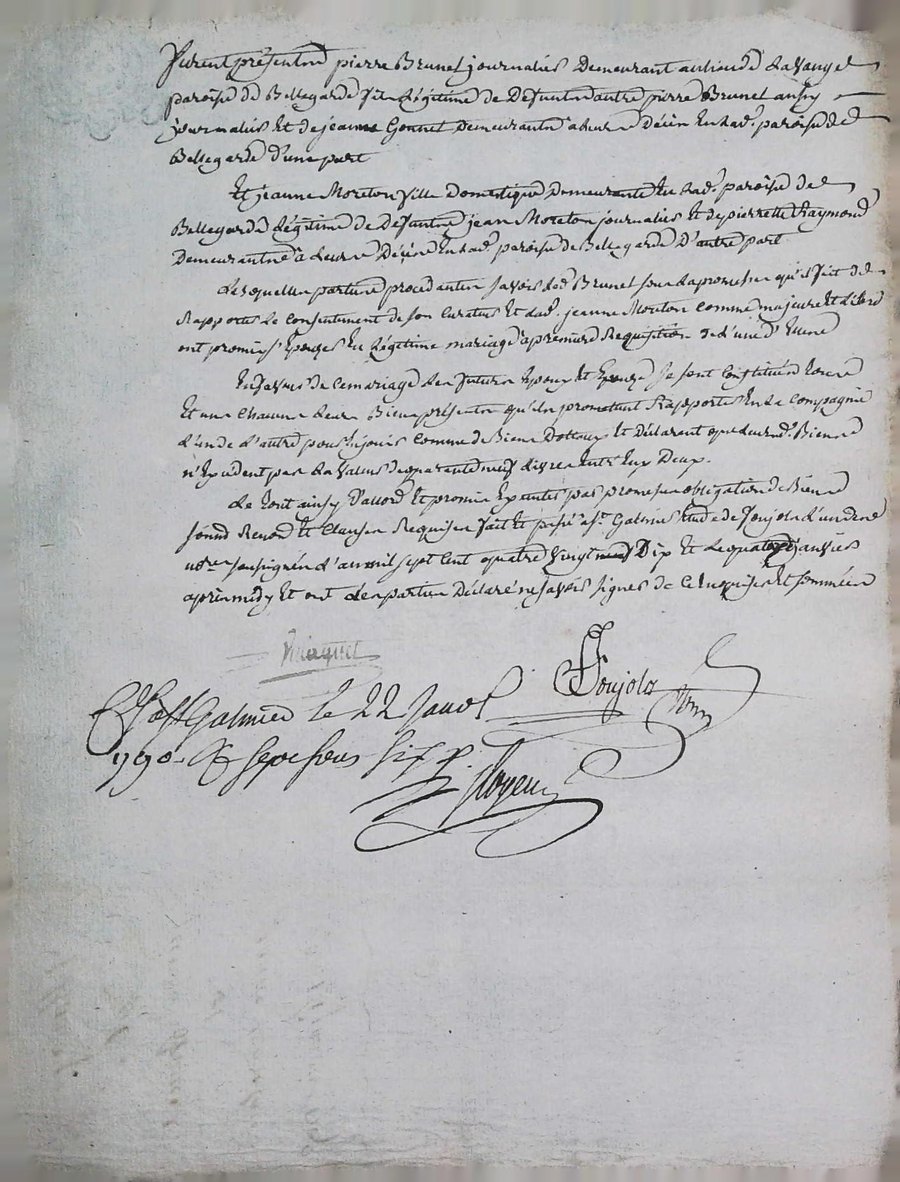 Furent présentés pierre Brunet journalier Demeurant au lieu de Lavanges
paroisse de Bellegarde fils Légitime de Defunt autre pierre Brunet aussy
journalier Et de jeanne Gonnet Demeurants a leurs Décès En lad. paroisse de
Bellegarde d'une part
Et jeanne Moreton fille domestique Demeurante En lad. paroisse de
Bellegarde Légitime de Defunts jean Moreton journalier Et de pierrette Raymond
Demeurants à leurs Décès En lad. paroisse de Bellegarde D'autre part
Lesquelles parties procedantes savoir led. Brunet sous la promesse qu'il fait de
Rapporter le Consentement de son Curateur Et lad. jeanne Mouton Comme majeure Et libre
ont promis s'Epouser En Légitime mariage à premiere Requisition de l'une d'Elles
En faveur de Ce mariage les futurs Epoux Et Epouse se sont Constitués tous
Et un Chacun leurs Biens présents qu'ils promettent Rapporter En la Compagnie
l'un de l'autre pour En jouir Comme de Biens Dotaux Et Déclarent que leursd. Biens
n'Excedent pas la valeur de quarante neuf livres Entr'Eux Deux.
Le tout ainsy D'accord Et promis Executer par promesse obligation de Biens
soumis Renon.d Et Clauses Requises fait Et passé a St. Galmier Etude de Ponjols l'un des
no.res soussignés l'an mil sept Cent quatre vingt Dix Et le quatorze janvier
après midy Et ont les parties Déclaré ne savoir signer de Ce Enquises Et sommées
Ponjols
C. a St Galmier le 22 Janv.
1790. R. sept sous six d.